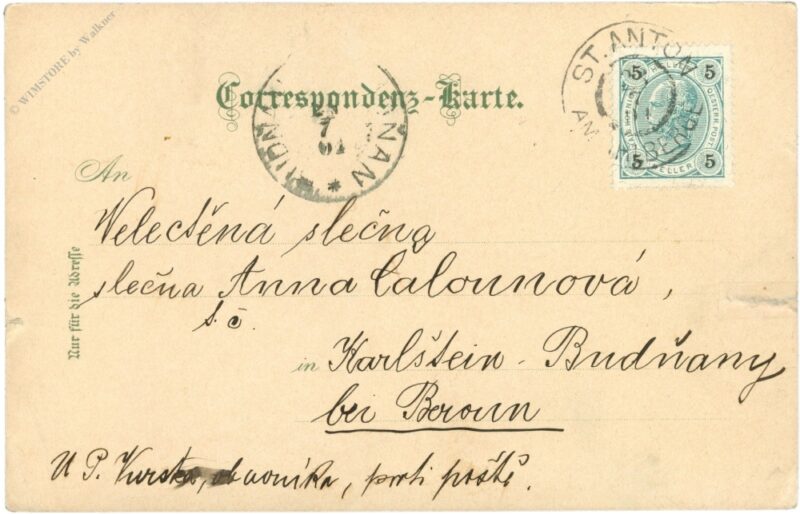 © WIMSTORE by Walkner
ST. ANTON
AM ARLBERG
5 5
5 5
HELLER
Correspondenz-Karte.
7
01
An
Velectěná slečna
slečna Anna Calounnová,
s. č.
in Karlštein - Budňany
bei Beroun
Nur für die Adresse
U P. Kursta, obuvníka, proti poště.